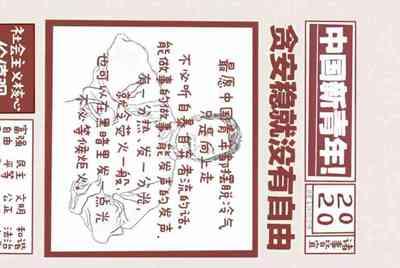 中国新青年!
2020
贪安稳就没有自由
最愿中国青年都摆脱冷气
只是向上走
不必听自暴自弃者流的话。
能做事的做事,能发声的发声。
有一分热,发一分光,
就令萤火一般,
也可以在黑暗里发一点光
不必等候炬火
社会主义核心
价值观
富强 民主 文明 和谐
自由 平等 公正 法治